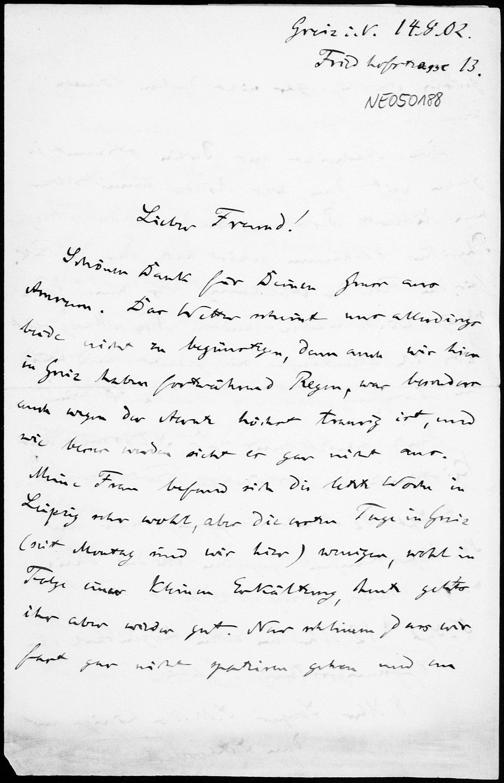 Greiz i. V. 14.8.02.
Friedhofstrasse 13.
NE050188
Lieber Freund!
Schönen Dank für Deinen Gruss aus
Amrum. Das Wetter scheint uns allerdings
beide nicht zu begünstigen, denn auch wir hier
in Greiz haben fortwährend Regen, was besonders
auch wegen der Ernte höchst traurig ist, und
wie besser werden sieht es gar nicht aus.
Meine Frau befand sich die letzte Woche in
Leipzig sehr wohl, aber die ersten Tage in Greiz
(seit Montag sind wir hier) weniger, wohl in
Folge einer kleinen Erkältung, heut geht's
ihr aber wieder gut. Nur schlimm, dass wir
fast gar nicht spazieren gehen und im